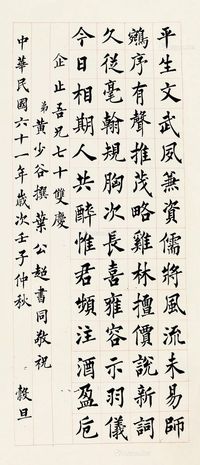 平生文武夙兼資儒將風流未易師
鵷序有聲推茂略雞林擅價說新詞
久從毫翰規胸次長喜雍容示羽儀
今日相期人共醉惟君頻注酒盈卮
企止吾兄七十雙慶
弟黃少谷撰葉公超書同敬祝
中華民國六十一年歲次壬子仲秋 穀旦